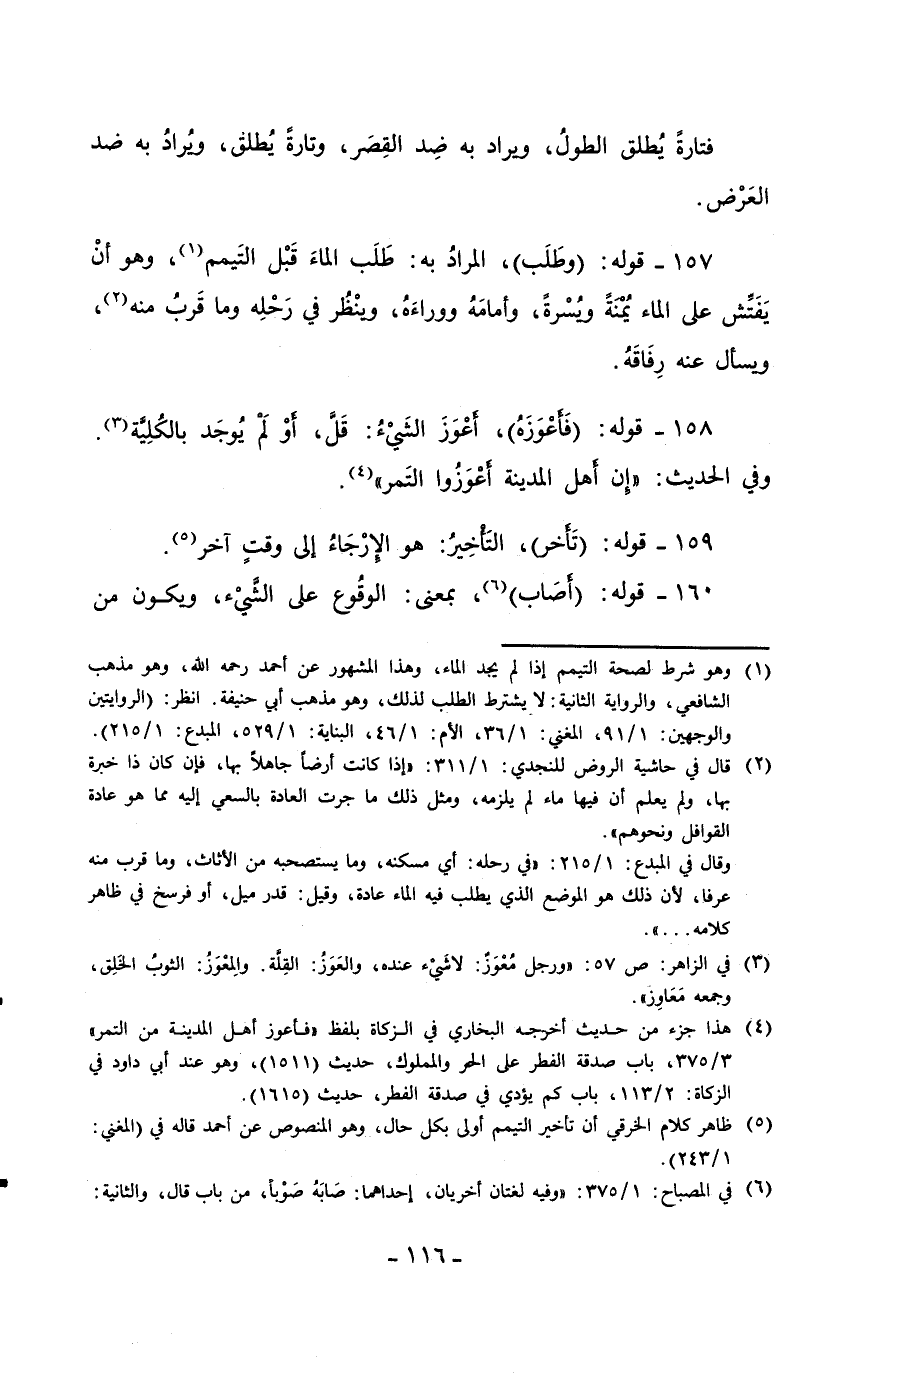 فتارةً يُطلق الطولُ، ويراد به ضِد القِصَر، وتارةً يُطلق، ويُرادُ به ضد
العَرْض.
١٥٧ - قوله: (وطَلَب)، المرادُ به: طَلَب الماءَ قَبْل التَيمم(١)، وهو أنْ
يَفَتِّش على الماء يُمْنَةً ويُسْرةً، وأمامَهُ ووراءَهُ، وينْظُر في رَحْلِه وما قَربُ منه(٢)،
ويسأل عنه رِفَاقَهُ.
١٥٨ - قوله: (فَأَعْوَزَهُ)، أَعْوَزَ الشَيْءُ: قَلَّ، أَوْ لَمْ يُوجَد بالكُليَّة(٣).
وفي الحديث: «إِن أَهل المدينة أَعْوَزُوا التَمر»(٤).
١٥٩ - قوله: (تَأَخر)، التَأْخِيرُ: هو الإِرْجَاءُ إلى وقتٍ آخر(٥).
١٦٠ - قوله: (أَصَاب)(٦)، بمعنى: الوقُوع على الشَّيْء، ويكون من
(١) وهو شرط لصحة التيمم إذا لم يجد الماء، وهذا المشهور عن أحمد رحمه الله، وهو مذهب
الشافعي، والرواية الثانية: لا يشترط الطلب لذلك، وهو مذهب أبي حنيفة. انظر: (الروايتين
والوجهين: ٩١/١، المغني: ٣٦/١، الأم: ٤٦/١، البناية: ٥٢٩/١، المبدع: ٢١٥/١).
(٢) قال في حاشية الروض للنجدي: ٣١١/١: «إذا كانت أرضاً جاهلاً بها، فإن كان ذا خبرة
بها، ولم يعلم أن فيها ماء لم يلزمه، ومثل ذلك ما جرت العادة بالسعي إليه مما هو عادة
القوافل ونحوهم».
وقال في المبدع: ٢١٥/١: «في رحله: أي مسكنه، وما يستصحبه من الأثاث، وما قرب منه
عرفا، لأن ذلك هو الموضع الذي يطلب فيه الماء عادة، وقيل: قدر ميل، أو فرسخ في ظاهر
كلامه...».
(٣) في الزاهر: ص ٥٧: «ورجل مُعْوَزٌ: لاشَيْء عنده، والعَوَزُ: القِلَّة. والمِعْوَزُ: الثوبُ الخَلِق،
وجمعه مَعَاوِز».
(٤) هذا جزء من حديث أخرجه البخاري في الزكاة بلفظ «فأعوز أهل المدينة من التمر»
٣٧٥/٣، باب صدقة الفطر على الحر والمملوك، حديث (١٥١١)، وهو عند أبي داود في
الزكاة: ١١٣/٢، باب كم يؤدي في صدقة الفطر، حديث (١٦١٥).
(٥) ظاهر كلام الخرقي أن تأخير التيمم أولى بكل حال، وهو المنصوص عن أحمد قاله في (المغني:
٢٤٣/١).
(٦) في المصباح: ٣٧٥/١: «وفيه لغتان أخريان، إحداهما: صَابَهُ صَوْباً، من باب قال، والثانية:
- ١١٦ -